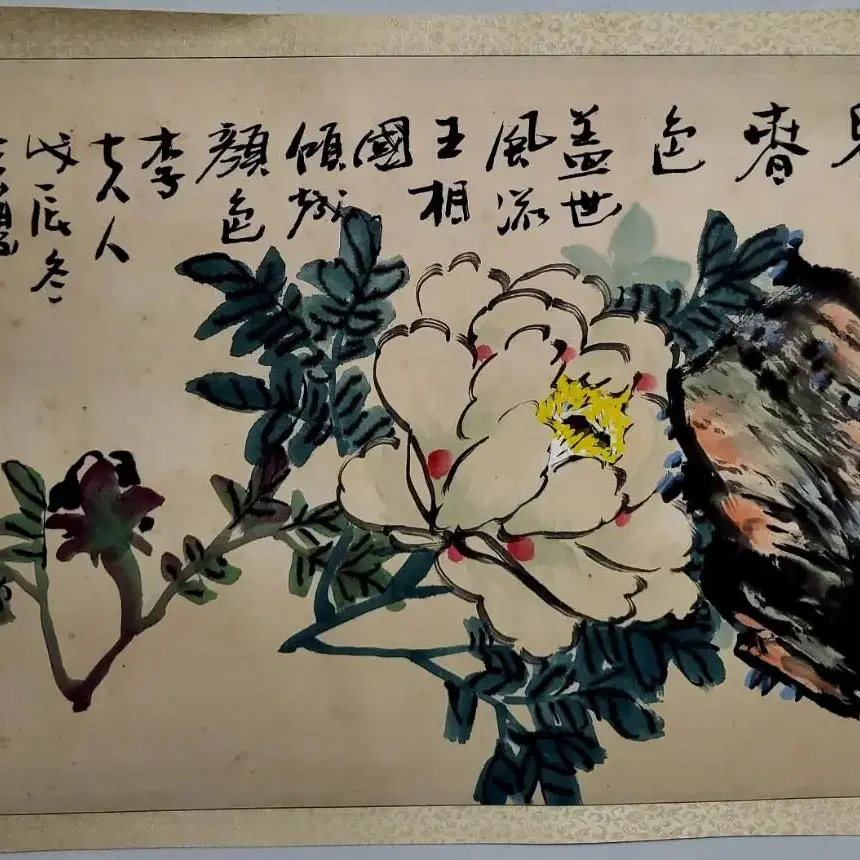 春
色
盖世
風流
王相
國
傾城
顔色
李
夫人
戊辰冬